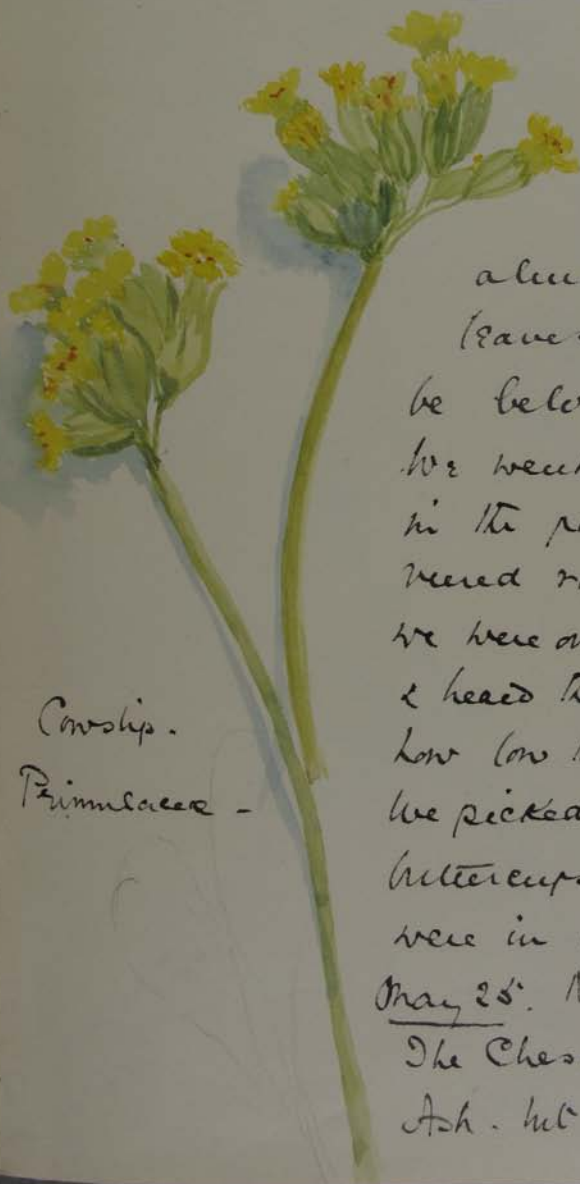 Cowslip.
Primulaceae -
leaves
be belo
We went
in the p
veered r
we were on
& heard th
how low
We picked
buttercups
were in
May 25.
The Ches
Ash. but